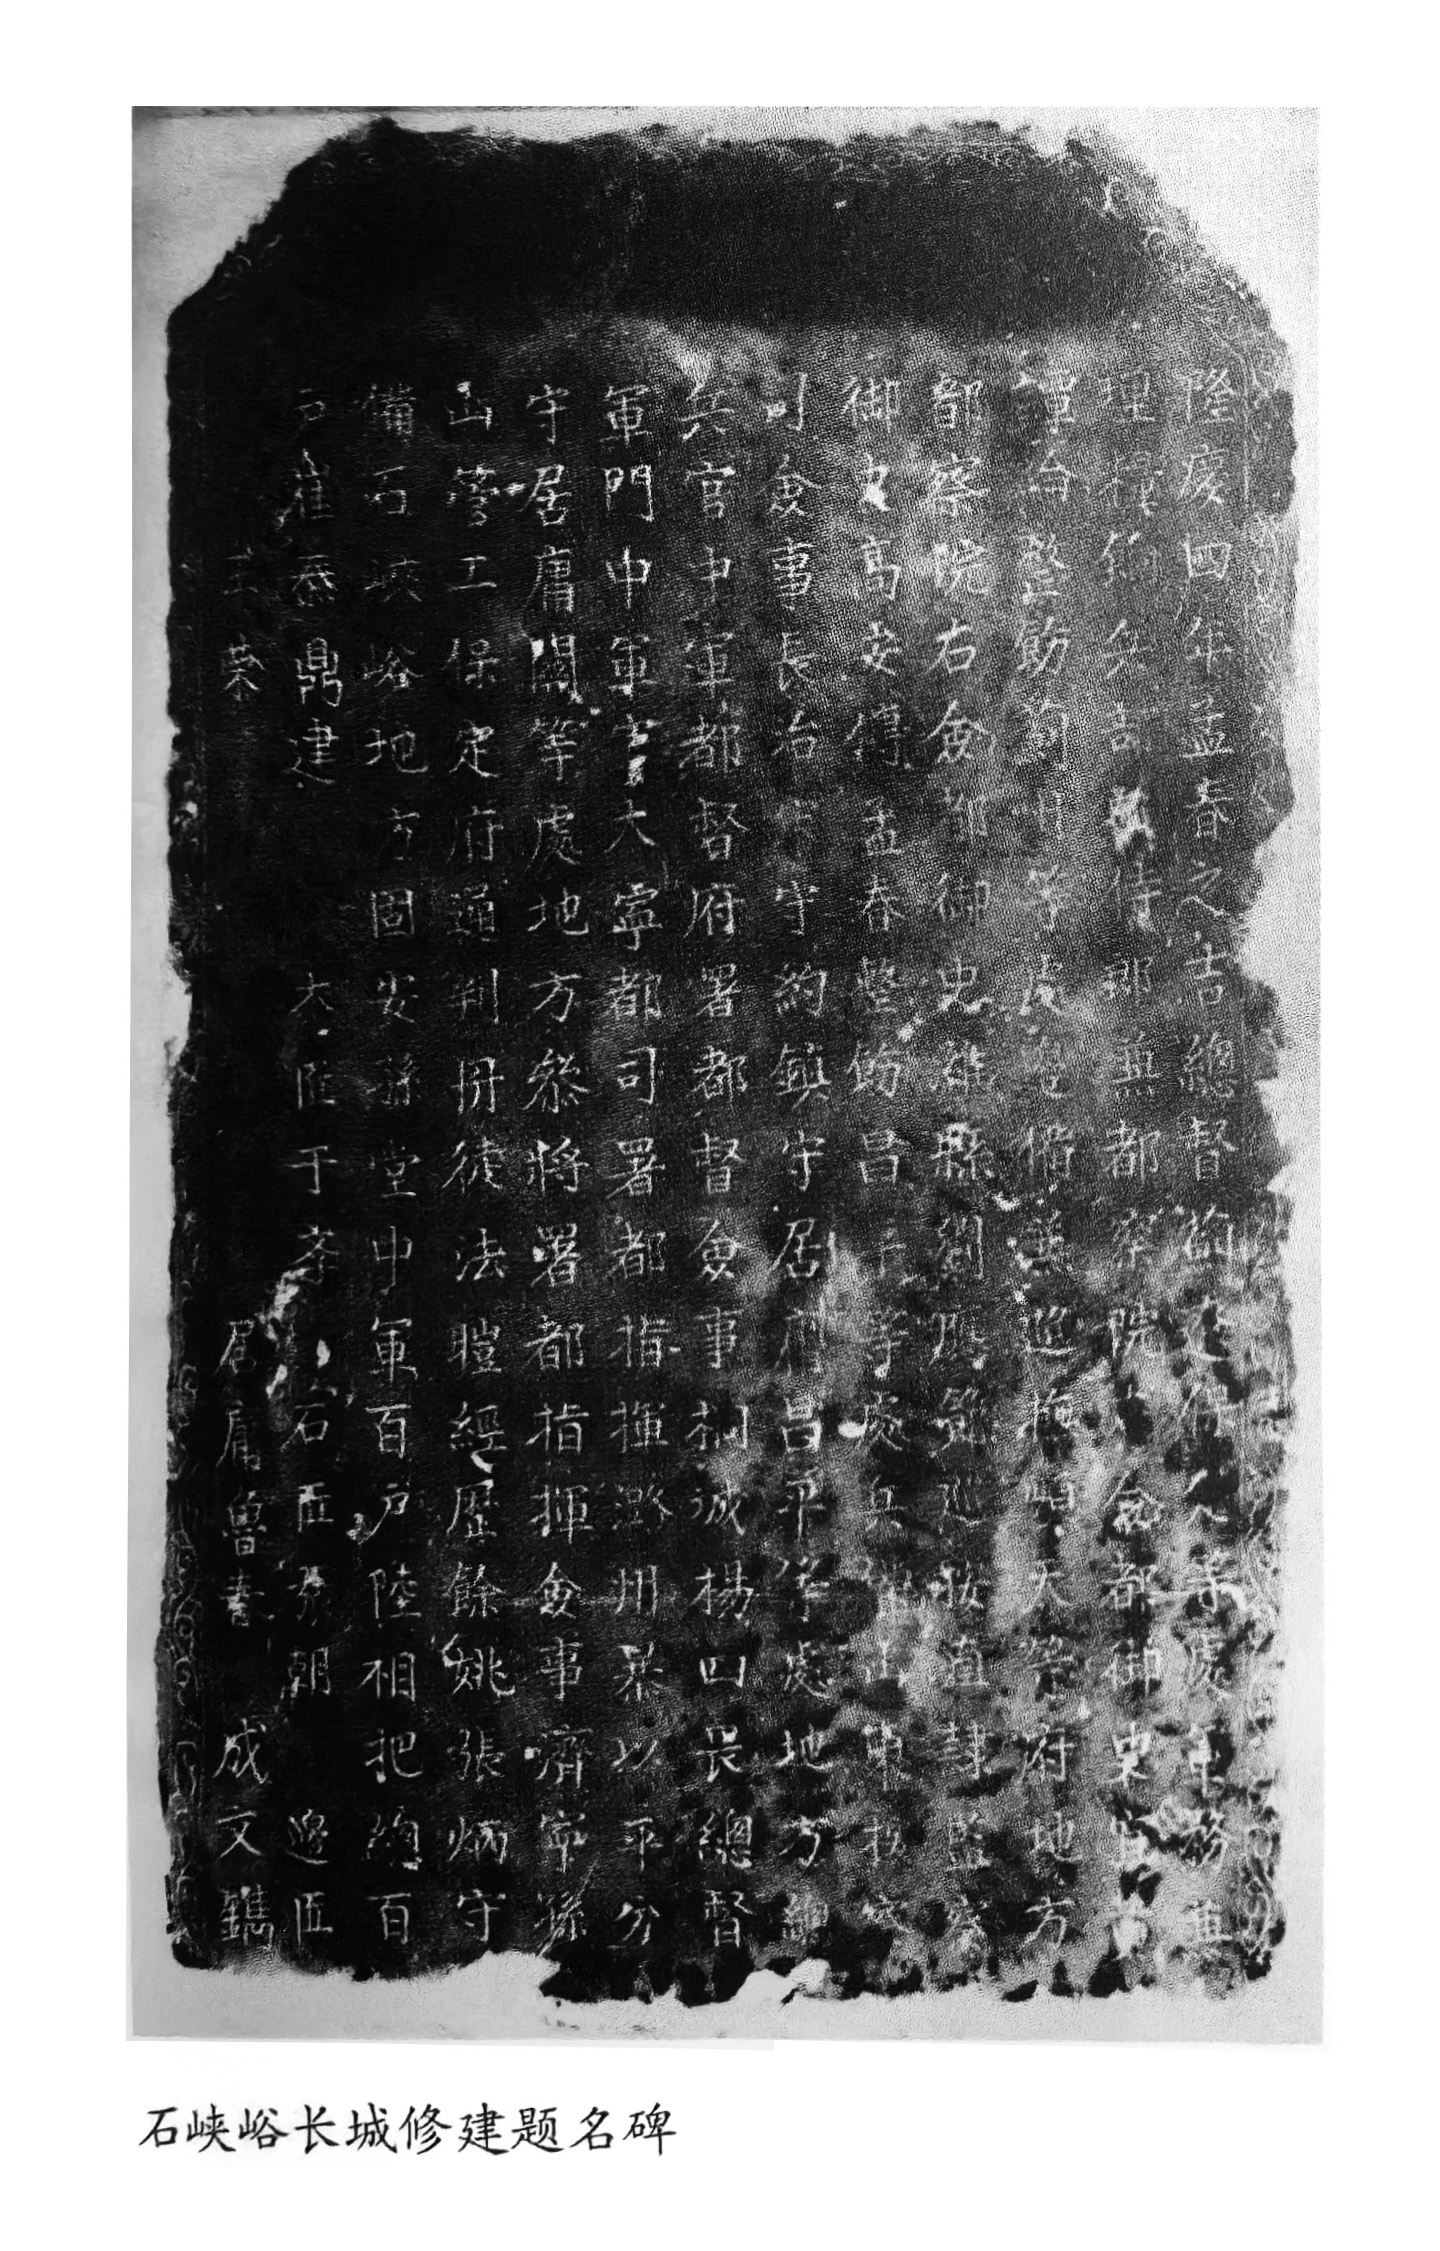 隆慶四年孟春之吉總督薊遼保定等處軍務兼
理糧餉兵部侍郎兼都察院右僉都御史宜黃
譚綸整飭薊州等處邊備兼巡撫順天等府地方
都察院右僉都御史濰縣劉應節巡按直隸監察
御史高安傅孟春整飭昌平等處兵備山東按察
司僉事長治守約鎮守居庸昌平等處地方總
兵官中軍都督府署都督僉事桐城楊四畏總督
軍門中軍官大寧都司署都指揮灤州暴以平分
守居庸關等處地方叅將署都指揮僉事濟寧孫
山管工保定府通判冊徒法暟經歷餘姚張炳守
備石峽峪地方固安孫堂中軍百戶陸相把總百
戶崔泰鼎建 大匠于孝 石匠朝 邊匠
榮 居庸魯書 成文鐫
石峡峪长城修建题名碑